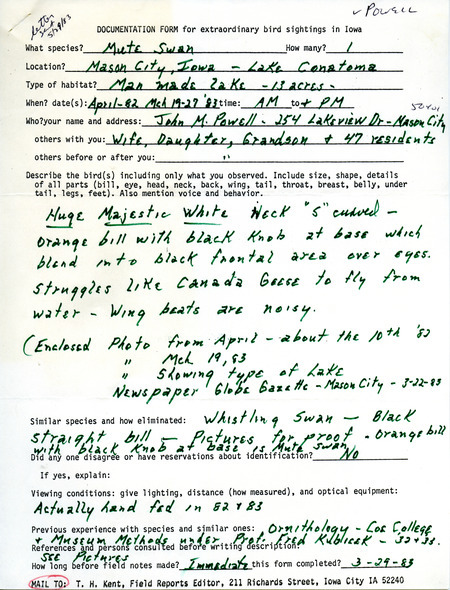 ✓ Powell
letter
sent
5/29/83
DOCUMENTATION FORM for extraordinary bird sightings in Iowa
What species? Mute Swan How many? 1
Location? Mason City, Iowa - Lake Conatoma
Type of habitat? Man made lake - 13 acres -
When? date(s): April-82 Mch 19-27 '83 time: AM to + PM
50401
Who? your name and address: John M. Powell - 254 Lakeview Dr - Mason City
others with you: Wife, Daughter, Grandson + 47 residents
others before or after you: "
Describe the bird(s) including only what you observed. Include size, shape, details
of all parts (bill, eye, head, neck, back, wing, tail, throat, breast, belly, under
tail, legs, feet). Also mention voice and behavior.
Huge Majestic White Neck "S" curved -
Orange bill with black Knob at base which
blend into black frontal area over eyes.
Struggles like Canada Geese to fly from
water - Wing beats are noisy.
(Enclosed Photo from April - about the 10th '82
" Mch 19, 83
" Showing type of Lake
Newspaper Globe Gazette - Mason City - 3-22-83
Similar species and how eliminated: Whistling Swan - Black
straight bill - Pictures for proof - Orange bill
with black Knob at base is Mute Swan
Did any one disagree or have reservations about identification? No
If yes, explain:
Viewing conditions: give lighting, distance (how measured), and optical equipment:
Actually hand fed in 82 + 83
Previous experience with species and similar ones: Ornithology - Coe College
+ Museum Methods under Prof. Fred Kubicek - 32 + 33.
References and persons consulted before writing description:
See Pictures
How long before field notes made? Immediate this form completed? 3-29-83
MAIL TO: T. H. Kent, Field Reports Editor, 211 Richards Street, Iowa City IA 52240